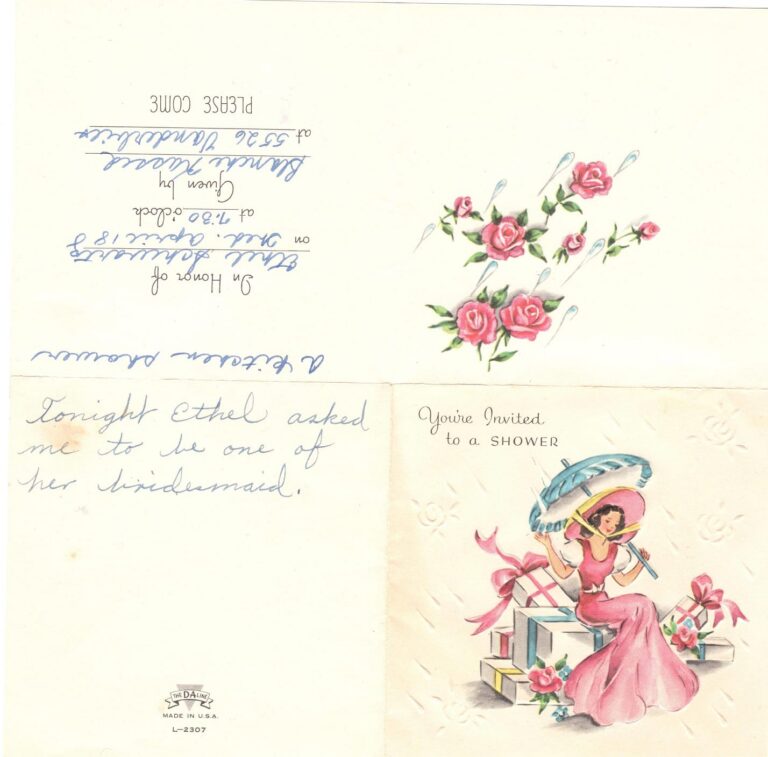 You're Invited
to a SHOWER
a kitchen shower
In Honor of
Ethel Schwartz
on Wed. April 18
at 7:30 o'clock
Given by
Blanche
at 5526
PLEASE COME
Tonight Ethel asked
me to be one of
her bridesmaid.
THE DA LINE
MADE IN U.S.A.
L-2307